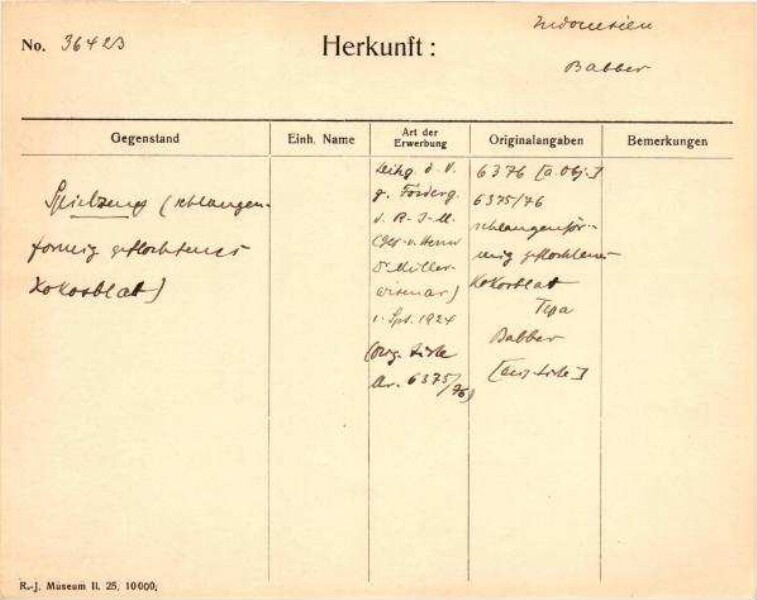 Indonesien
No. 36423
Herkunft:
Babber
Gegenstand
Einh. Name
Art der Erwerbung
Originalangaben
Bemerkungen
Spielzeug (schlangen-
förmig geflochtenes
Kokosblat)
Leihg. d. V.
z. Förderg.
d. R-J-M.
(Ges. v. Herrn
Dr Müller-
Wismar)
1. Spt. 1924
(Org. Liste
Nr. 6375/76)
6376 [a. Obj.]
6375/76
schlangenför-
mig geflochtenes
Kokosblat
Tepa
Babber
[Org. Liste]
R.-J. Museum II. 25, 10000.